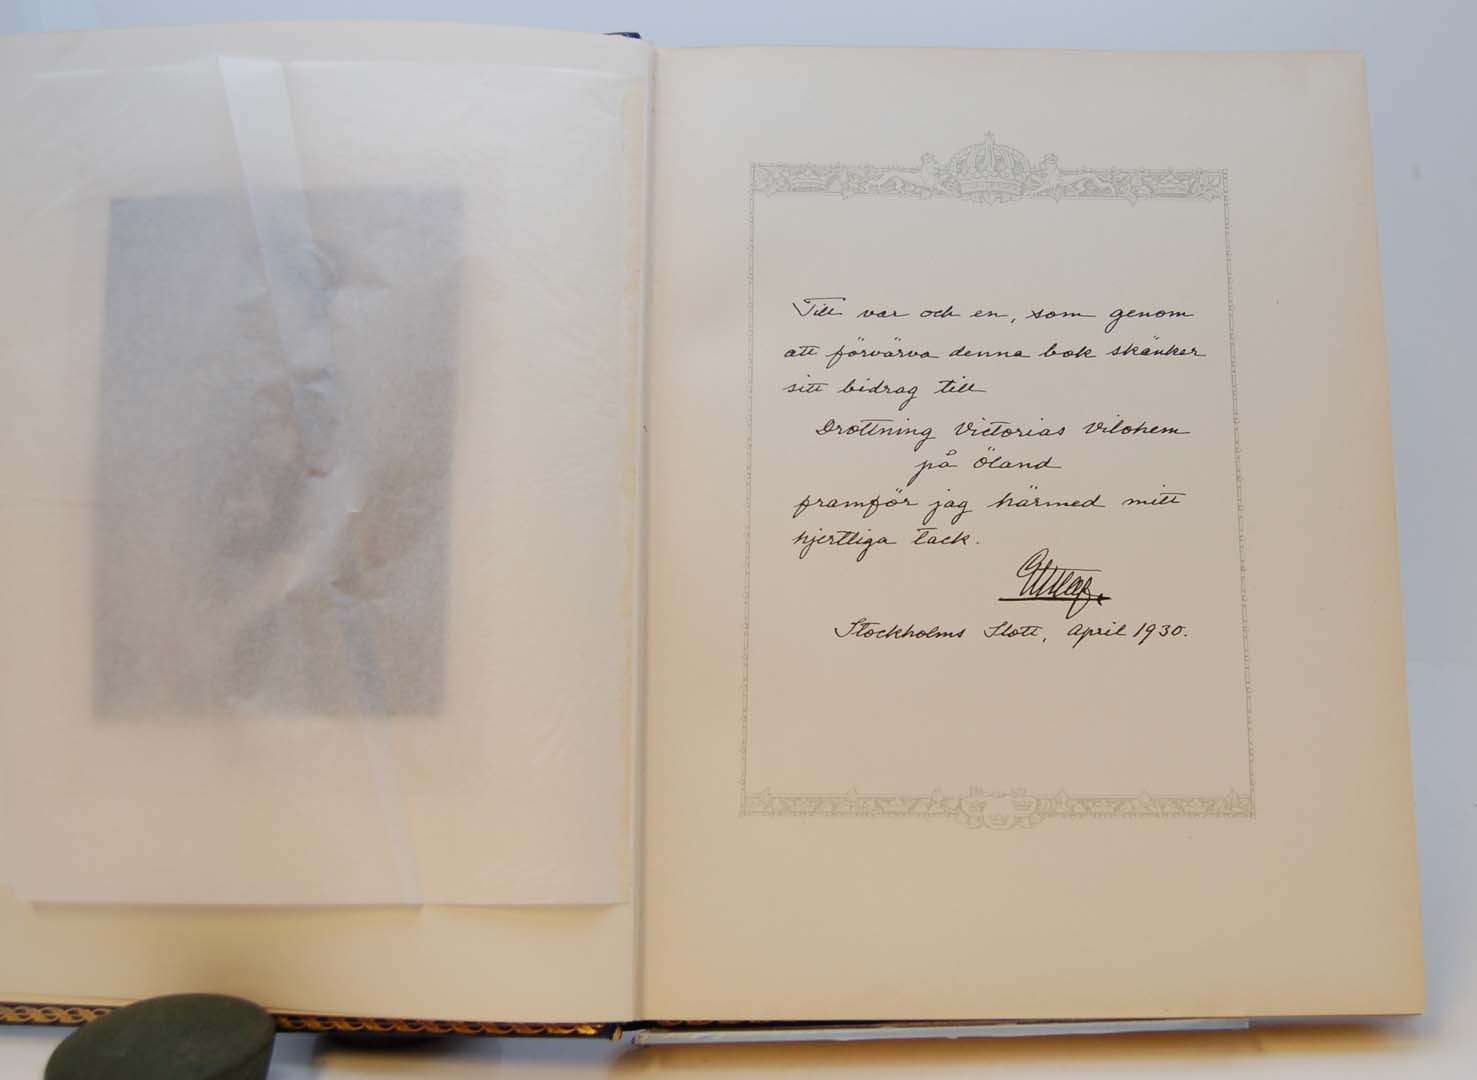 Till var och en, som genom
att förvärva denna bok skänker
sitt bidrag till
Drottning Victorias Vilohem
på Öland
framför jag härmed mitt
hjertliga tack.
Gustaf.
Stockholms Slott, April 1930.